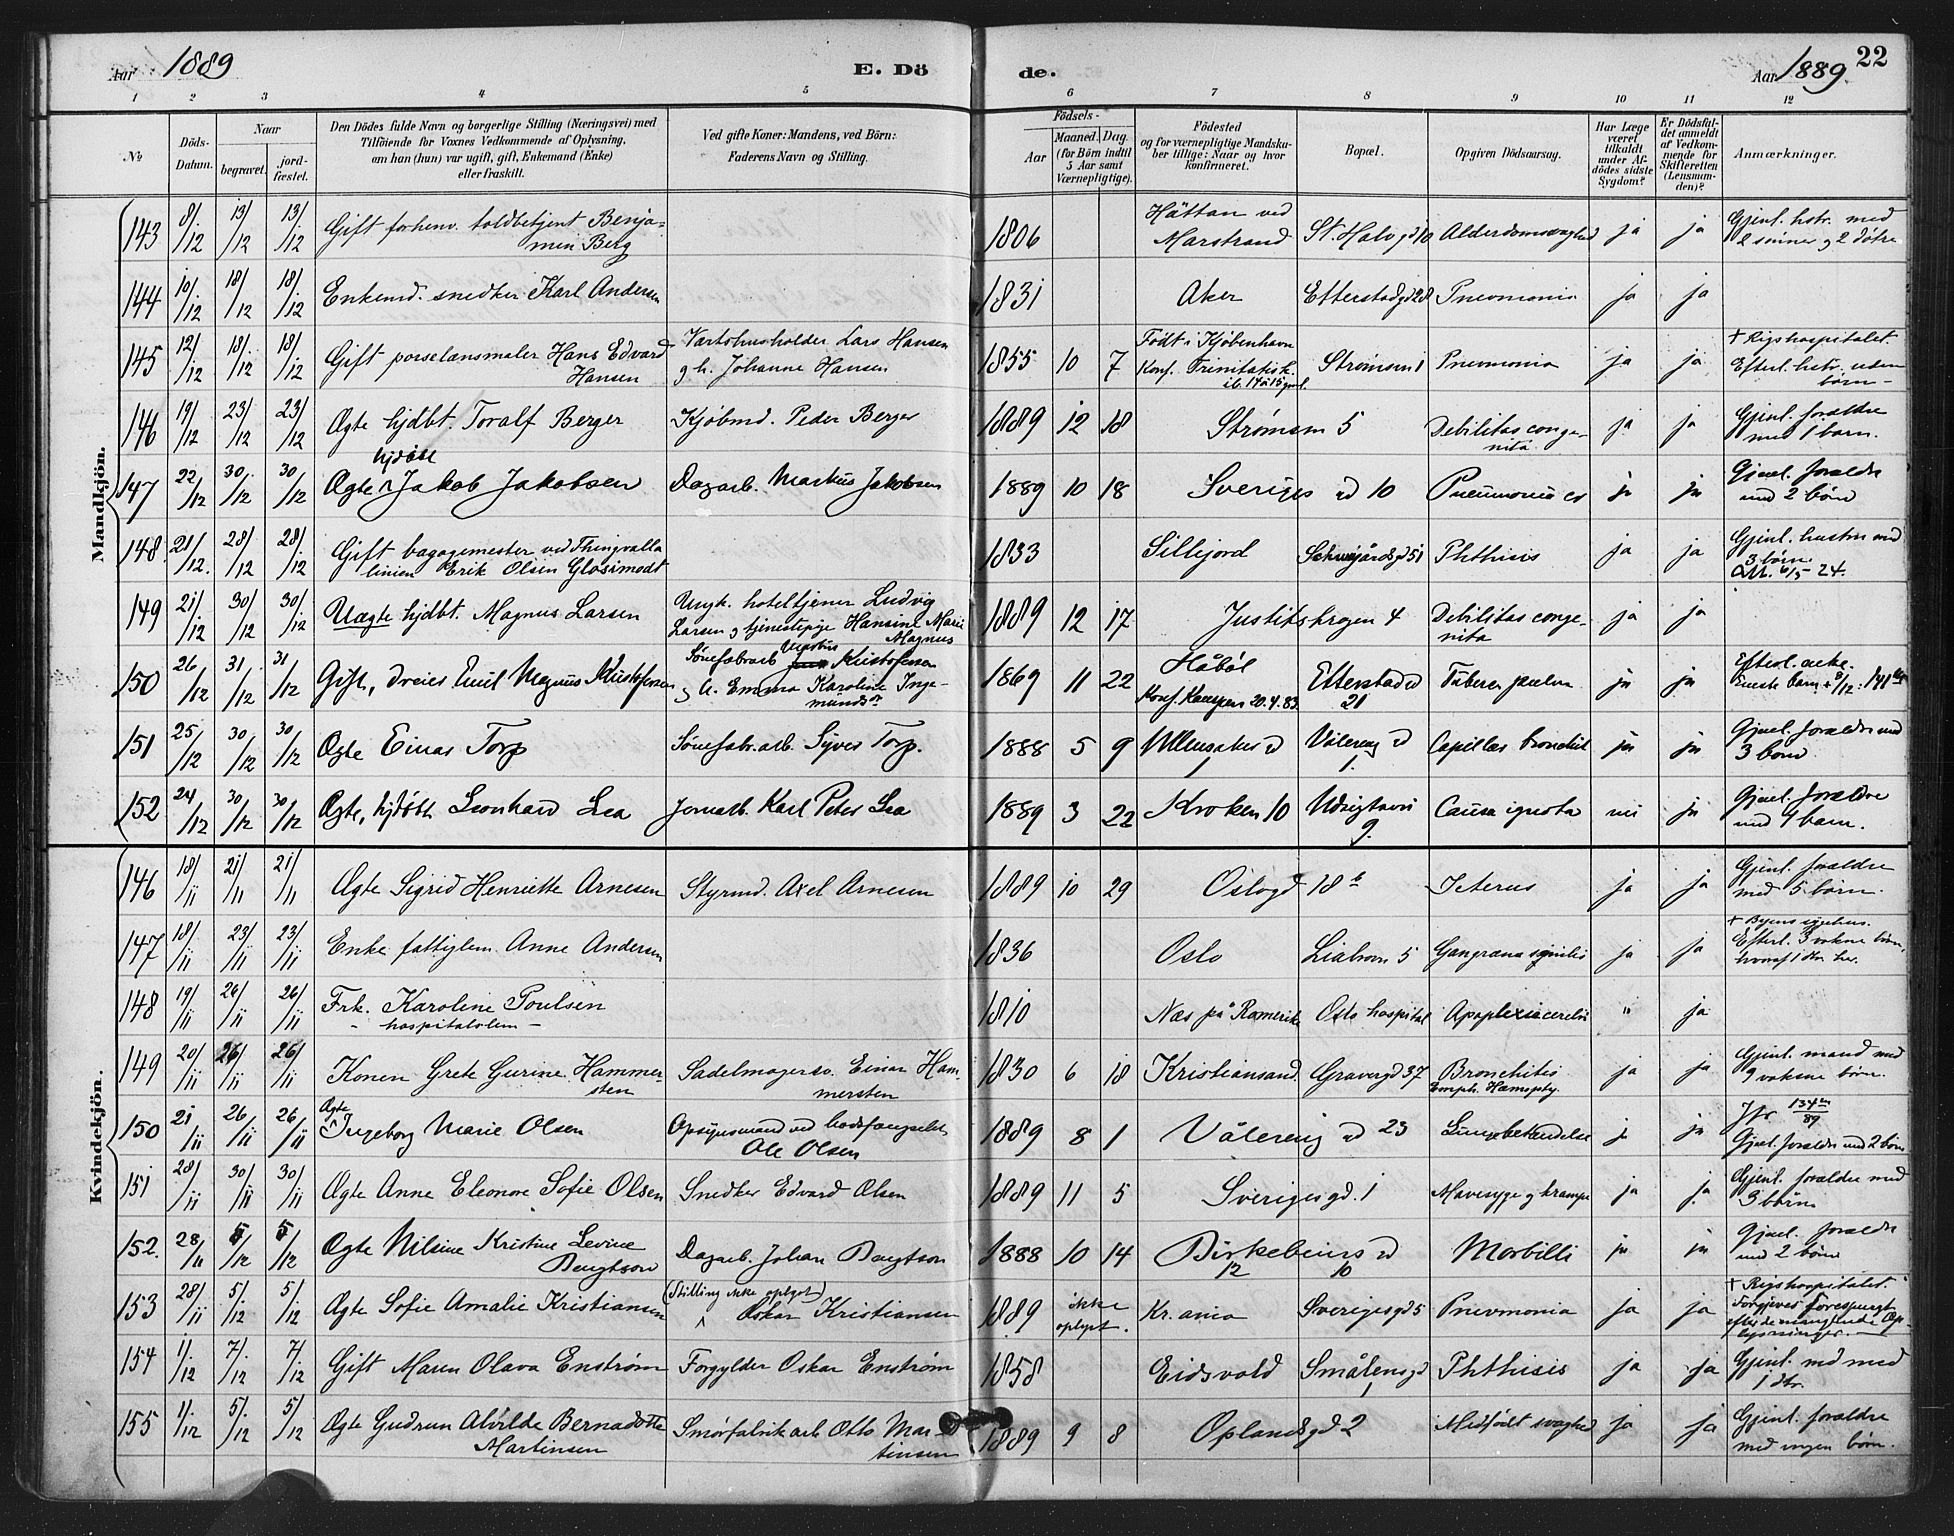 Aar 1889
E. Dö
de.
Aar 1889.
22
1 2 3 4 5 6 7 8 9 10 11 12
№
Döds-
Datum.
Naar
begravet.
jord-
fæstet.
Den Dödes fulde Navn og borgerlige Stilling (Næringsvei) med
Tilföiende for Voxnes Vedkommende af Oplysning,
om han (hun) var ugift, gift, Enkemand (Enke)
eller fraskilt.
Ved gifte Koner: Mandens, ved Börn:
Faderens Navn og Stilling.
Födsels-
Aar
Maaned. Dag.
(for Börn indtil
5 Aar samt
Værnepligtige).
Födested
og for værnepligtige Mandska-
ber tillige: Naar og hvor
konfirmeret.
Bopæl.
Opgiven Dödsaarsag.
Har Læge
været
tilkaldt
under Af-
dödes sidste
Sygdom?
Er Dödsfal-
det anmeldt
af Vedkom-
mende for
Skifteretten
(Lensman-
den)?
Anmærkninger.
Mandkjön.
143 8/12 13/12 13/12 Gift forhenv. toldbetjent Benja-
men Berg 1806 Håttan ved
Marstrand St. Halvgd 10 Alderdomsvaghed ja ja Gjenl. hstr. med
2 sönner og 2 døtre
144 10/12 18/12 18/12 Enkemd. snedker Karl Andersen 1831 Aker Etterstadgd 28 Pneumonia ja ja
145 12/12 18/12 18/12 Gift porselænsmaler Hans Edvard
Hansen Værtshusholder Lars Hansen
og h. Johanne Hansen 1855 10 7 Født i Kjøbenhavn
Konf. Trinitatisk. Strømsv 1 Pneumonia ja ja + Rigshospitalet.
Efterl. hstr. uden
børn
146 19/12 23/12 23/12 Ægte hjdbt. Toralf Berger Kjøbmd. Peder Berger 1889 12 18 Strømsvn 5 Debilitas conge-
nita ja ja Gjenl. forældre
med 1 barn.
147 22/12 30/12 30/12 Ægte hjdöbt Jakob Jakobsen Dagarb. Markus Jakobsen 1889 10 18 Sveriges gd 10 Pneumonia ja ja Gjenl. forældre
med 2 börn
148 21/12. 28/12 28/12 Gift bagagemester ved Thingvalla
linien Erik Olsen Glosimodt 1833 Sillejord Schweigårdsgd 51 Phthisis ja ja Gjenl. hustru med
3 børn.
149 21/12 30/12 30/12 Uægte hjdbt. Magnus Larsen Ungk. hoteltjener Ludvig
Larsen og tjenestepige Hansine Marie
Magnus 1889 12 17 Justitskrogen 4 Debilitas conge-
nita ja ja
150 26/12 31/12 31/12 Gift, dreier Emil Magnus Kristofersen Kristofersen
og h. Emma Karoline Inge-
mundsn 1869 11 22 Håböl
20.4.83. Etterstadgd
21 ja ja Efterl. enke.
151 25/12 30/12 30/12 Ægte Einar Torp Torp. 1888 5 9 Ullensakergd
1 Vålereng gd
1. Capillær bronchit ja ja Gjenl. forældre med
3 börn
152 24/12 30/12 30/12 Ægte, hjdøbt Leonhard Lea Jernarb. Karl Peter Lea 1889 3 22 Kroken 10 Udsigtsvei
9. Causa ignota nei ja Gjenl. forældre
med 1 barn.
Kvindekjön.
146 18/11 21/11 21/11 Ægte Sigrid Henriette Arnesen Styrmd. Axel Arnesen 1889 10 29 Oslogd 18 b Icterus ja ja Gjenl. forældre
med 5 børn.
147 18/11 23/11 23/11 Enke fattiglem Anne Andersen 1836 Oslo Liabroen 5 Gangræna senilis ja ja + Byens sygehus.
Efterl. 3 voksne børn,
hvoraf 1 dtr. her.
148 19/11 26/11 26/11 Frk. Karoline Poulsen
- hospitalslem - 1810 Næs på Romerike Oslo hospital Apoplexia cerebri " ja
149 20/11 26/11 26/11 Konen Grete Gurine Hammer-
sten Sadelmagersv. Einar Ham-
mersten 1830 6 18 Kristiansand Grønergd 37 Bronchitis
Emph. Hæmopty. ja ja Gjenl. mand med
9 voksne børn.
150 21/11 26/11 26/11 Ægte Ingeborg Marie Olsen Opsynsmand ved bodsfængselet
Ole Olsen 1889 8 1 Vålereng gd 23 Lungebetændelse ja ja Jfr 134/89
Gjenl. forældre med 2 börn
151 28/11 30/11 30/11 Ægte Anne Eleonore Sofie Olsen Snedker Edvard Olsen 1889 11 5 Sverigesgd. 1 Mavesyge og krampe ja ja Gjenl. forældre med
3 børn
152. 28/11 5/12 5/12 Ægte Nilsine Kristine Levine
Bengtson Dagarb. Johan Bengtson 1888 10 14 Birkebeiners gd
12 10 Morbilli ja ja Gjenl. forældre
med 2 börn
153 28/11 5/12 5/12 Ægte Sofie Amalie Kristiansen (Stilling ikke oplyst)
Oskar Kristiansen 1889 ikke
oplyst. Kr.ania Sverigesgd 5 Pneumonia ja ja + Rigshospitalet.
Forgjeves forespurgt
efter de manglende Op-
lysninger.
154 1/12 7/12 7/12 Gift Maren Olava Enstrøm Forgylder Oskar Enstrøm 1858 Eidsvold Smålensgd
1 Phthisis ja ja Gjenl. md med
1 dtr.
155 1/12 5/12 5/12 Ægte Gudrun Alvilde Bernadotte
Martinsen Smørfabrikarb Otto Mar-
tinsen 1889 9 8 Oplandsgd 2 Medfødt svaghed ja ja Gjenl. forældre
med ingen børn.